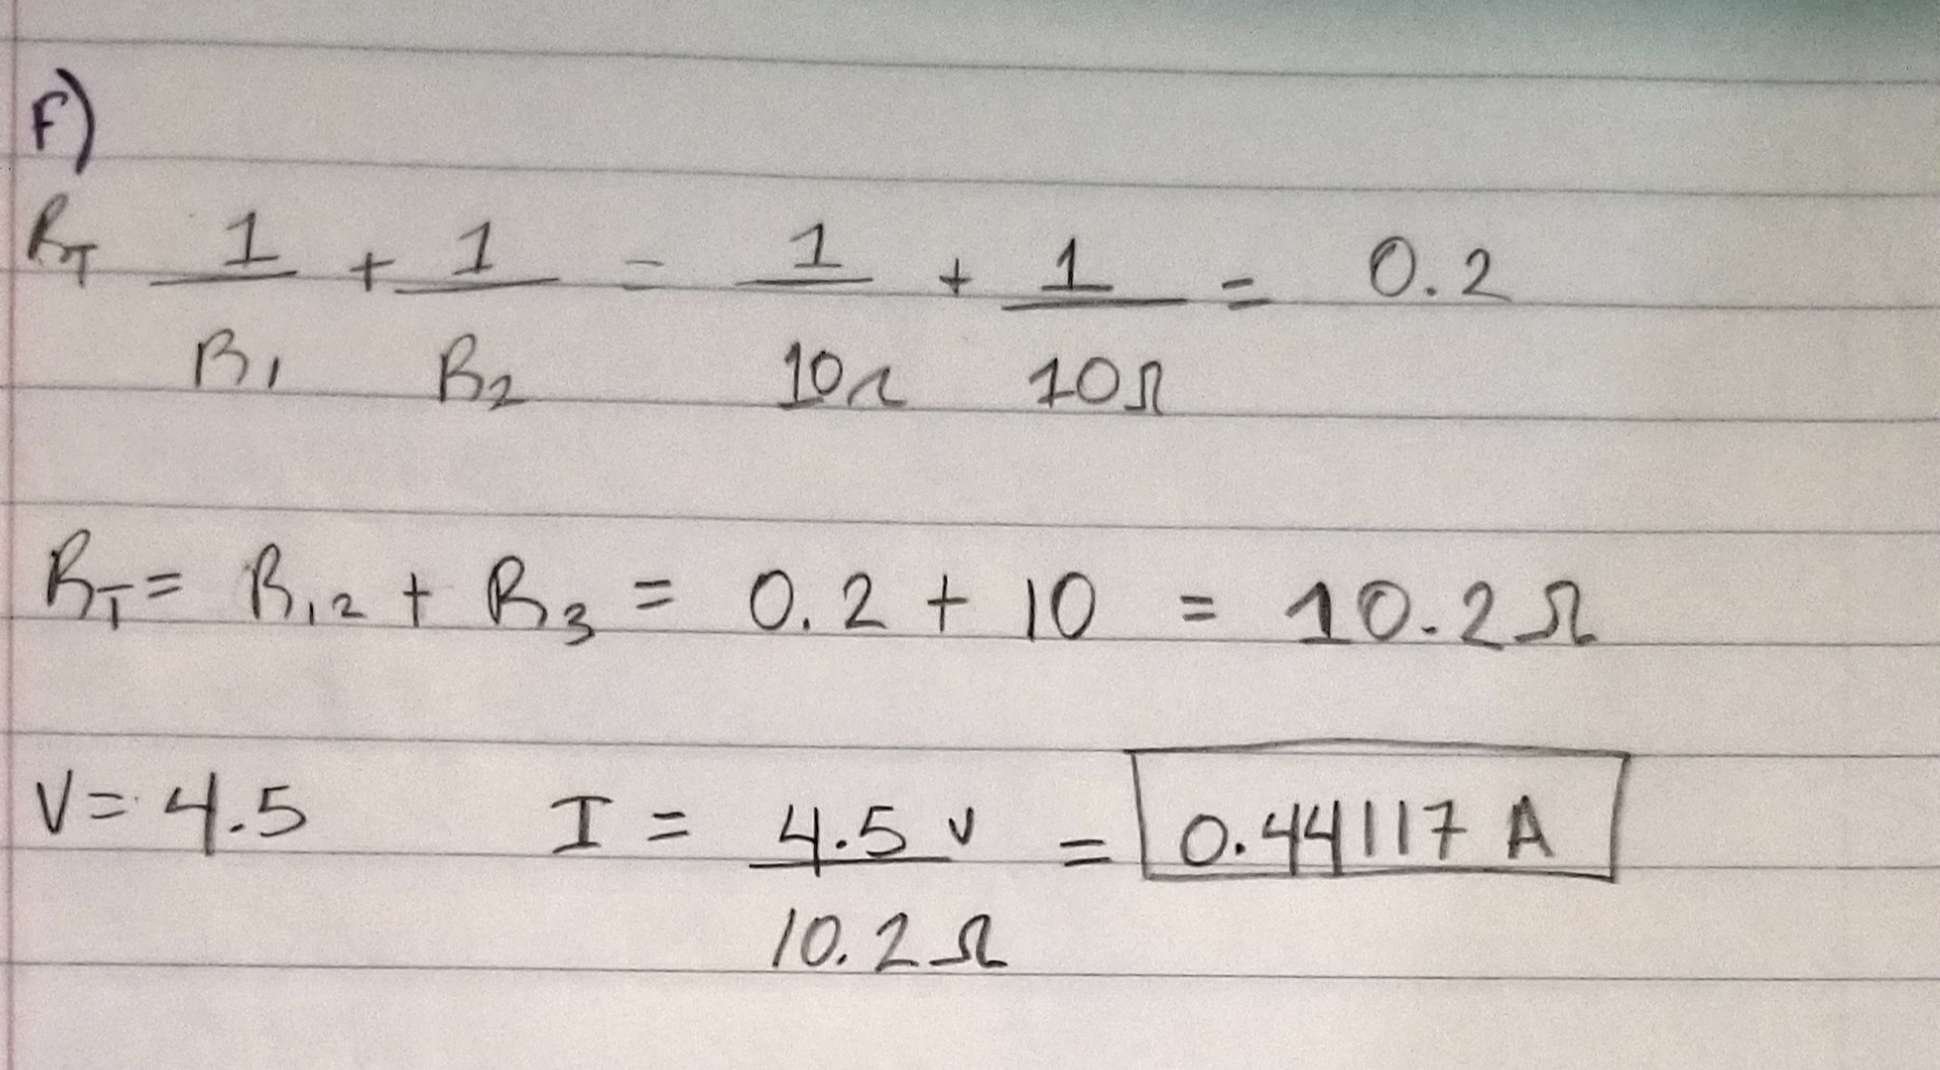 F)
R_T 1/R_1 + 1/R_2 = 1/10Ω + 1/10Ω = 0.2
R_T = R_12 + R_3 = 0.2 + 10 = 10.2 Ω
V = 4.5 I = 4.5 V/10.2 Ω = 0.44117 A